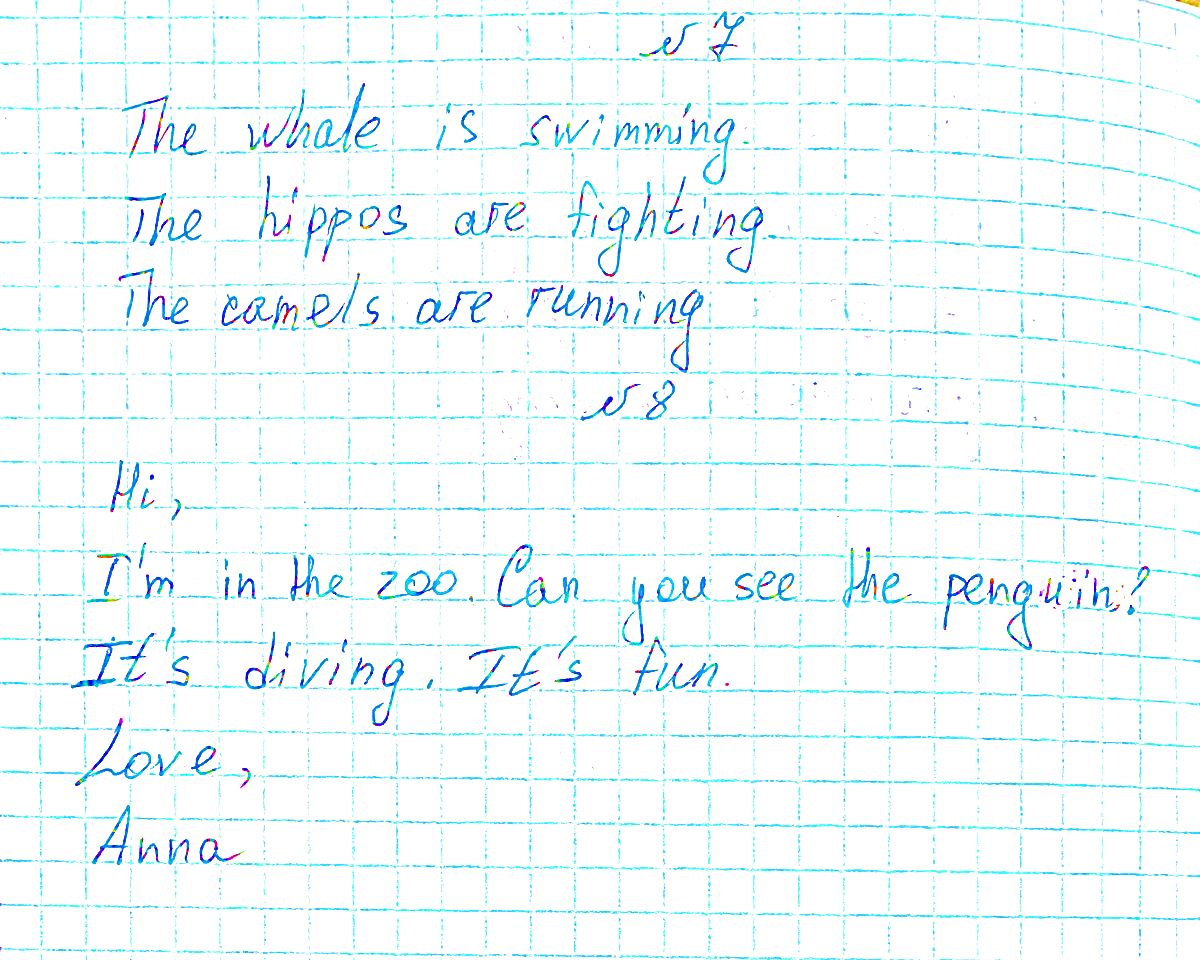 № 7
The whale is swimming.
The hippos are fighting.
The camels are running
№ 8
Hi,
I'm in the zoo. Can you see the penguin?
It's diving. It's fun.
Love,
Anna